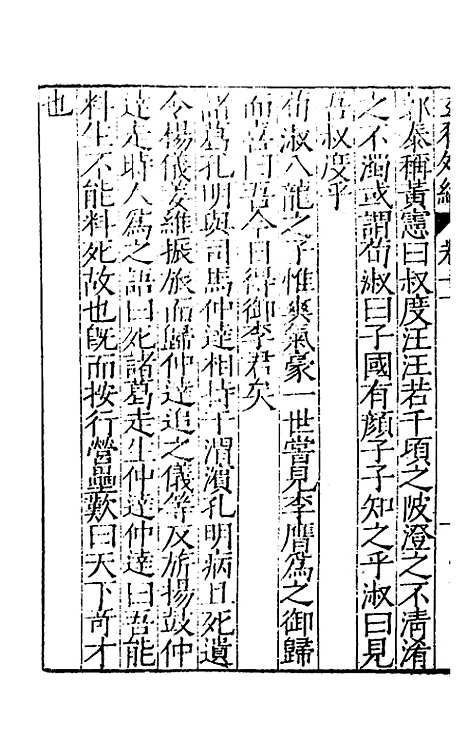 卷十一
郭泰稱黃憲曰叔度汪汪若千頃之陂澄之不清淆
之不濁或謂荀淑曰子國有顏子子知之乎淑曰見
吾叔度乎
荀淑八龍之子惟爽氣豪一世嘗見李膺爲之御歸
而喜曰吾今日得御李君矣
諸葛孔明與司馬仲達相持于渭濱孔明病且死遺
令楊儀姜維振旅而歸仲達追之儀等反旂揚鼓仲
達走時人爲之語曰死諸葛走生仲達仲達曰吾能
料生不能料死故也旣而按行營壘歎曰天下奇才
也